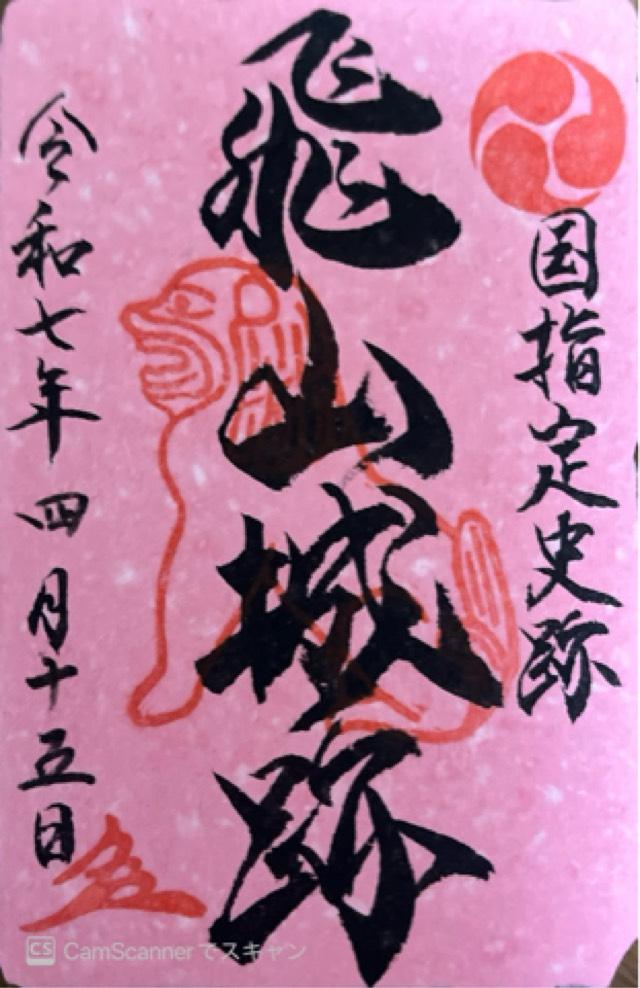 国指定史跡
飛山城跡
令和七年四月十五日
CS CamScannerでスキャン